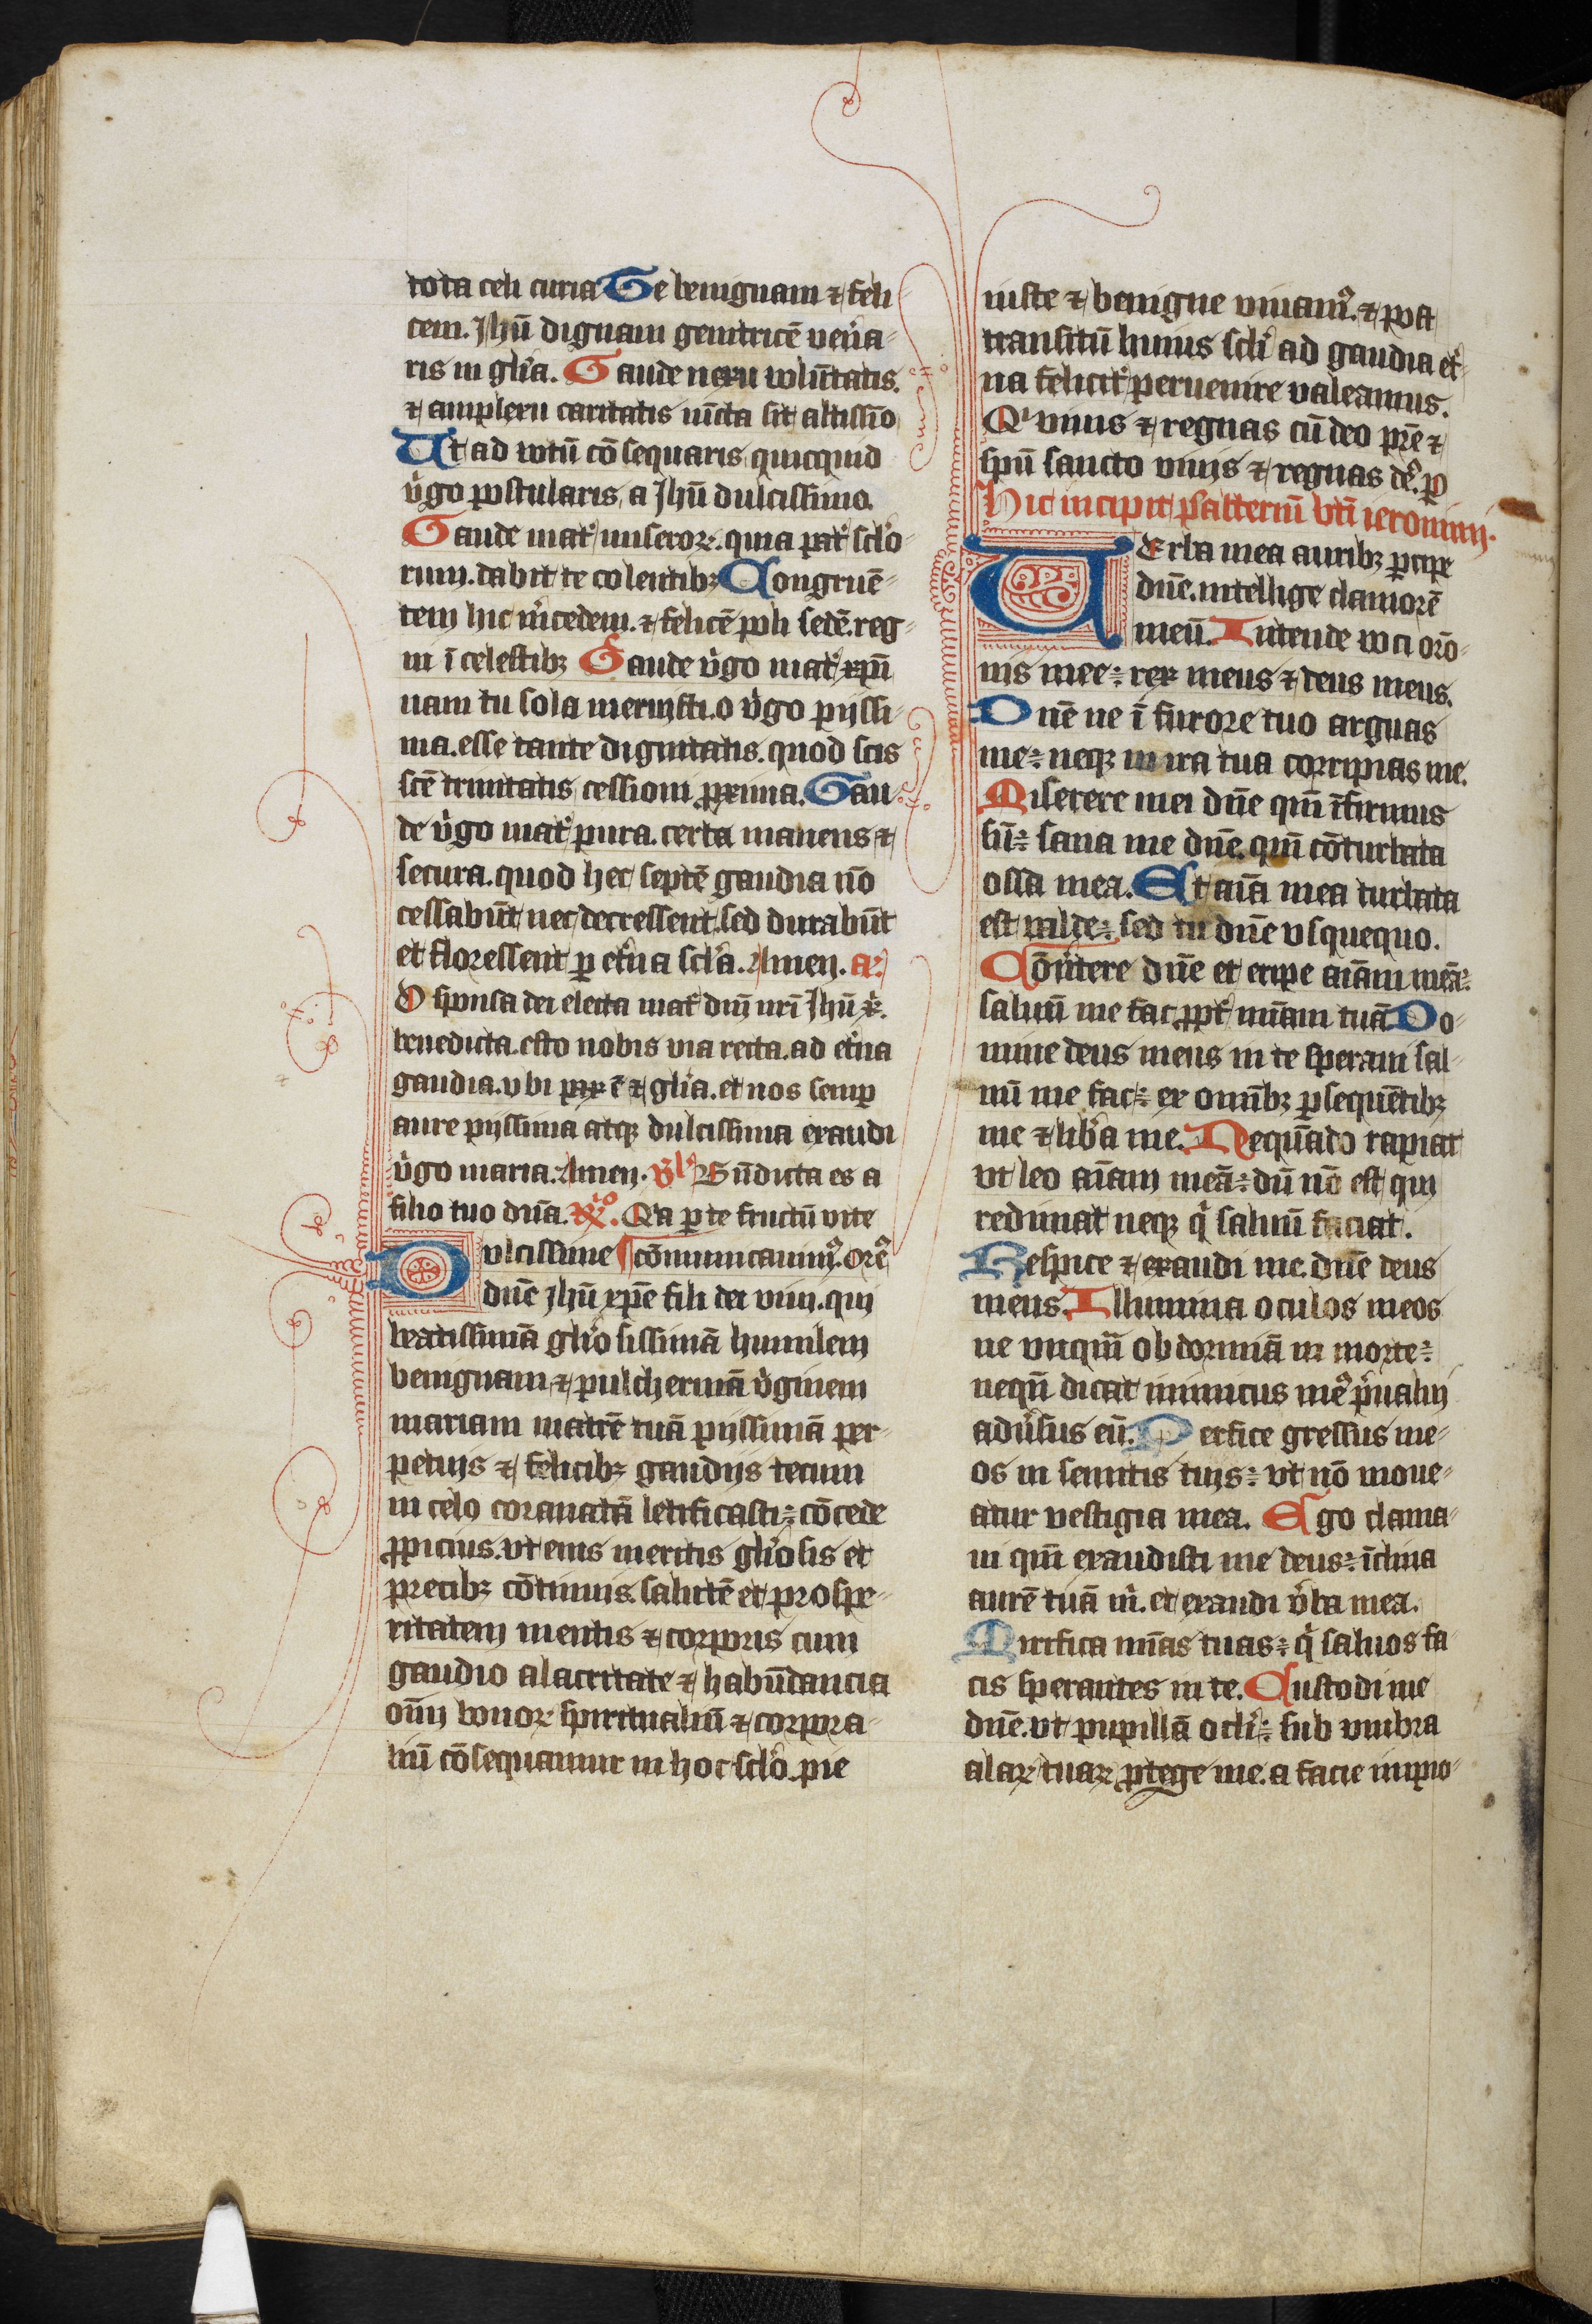 tota celi curia Te benignam ⁊ feli
cem. Jhū dignam genitricē ven̄a
ris in glīa. Gaude nexu volūtatis.
⁊ amplexu caritatis iūcta sit altissīo
Ut ad votū cōsequaris quicquid
v̄go postularis, a Jhū dulcissimo.
Gaude mat̄ miseroꝝ. quia pat̄ sclo
rum. dabit te colentibꝫ Congruē
tem hic m̄cedem. ⁊ felicē poli sedē. reg
ni ī celestibꝫ Gaude v̄go mat̄ xpū
nam tu sola meruisti. o v̄go pijssi
ma. esse tante dignitatis. quod scis
scē trinitatis cessioni ꝓxima. Gau
de v̄go mat̄ pura. certa manens ⁊
secura. quod hec septē gaudia nō
cessabūt nec decressent. sed durabūt
et floressent ꝑ et̄na scl̄a. Amen. a:
O sponsa dei electa mat̄ dn̄i nr̄i Jhū x̄.
benedicta. esto nobis via recta. ad et̄na
gaudia. vbi pax ē ⁊ glīa. et nos semꝑ
aure pijssima atqꝫ dulcissima exaudi
v̄go maria. Amen. v̄l Bn̄dicta es a
filio tuo dn̄a. R̄o. Qa ꝑ te fructū vite
Dulcissime ¶ cōmunicauimꝰ. Orē
dn̄e jhū xp̄e fili dei viui. qui
beatissimā gl̄iosissimā humilem
benignam ⁊ pulchermā v̄ginem
mariam matrē tuā pijssimā per
petuis ⁊ felicibꝫ gaudijs tecum
in celo coranatā letificasti: cōcede
ꝓpicius. vt eius meritis gl̄iosis et
precibꝫ cōtinuis. salutē et prospe
ritatem mentis ⁊ corporis cum
gaudio alacritate ⁊ habūdancia
om̄i bonoꝝ spiritualiū ⁊ corpora
liū cōsequamur in hoc sclo. pie
iuste ⁊ benigne viuamꝰ. ⁊ post
transitū huius scli ad gaudia et̄
na felicit̄ peruenire valeamus.
Qi viuis ⁊ regnas cū deo pr̄e ⁊
spū sancto viuis ⁊ regnas dē. ꝑ
Hic incipit psalteriū bt̄i ieronimi.
UErba mea auribꝫ ꝑcipe
dn̄e. intellige clamorē
meū. Intende voci orō
nis mee: rex meus ⁊ deus meus.
Dn̄e ne ī furore tuo arguas
me: neqꝫ in ira tua corripias me.
Miserere mei dn̄e qm̄ īfirmus
sū: sana me dn̄e. qm̄ cōturbata
ossa mea. Et aīa mea turbata
est valde: sed tu dn̄e vsquequo.
Cōūtere dn̄e et eripe aīam meā:
saluū me fac ꝓpt̄ mīam tuā Do
mine deus meus in te speraui sal
uū me fac: ex omībꝫ ꝑsequētibꝫ
me ⁊ lib̄a me. Nequādo rapiat
vt leo aīam meā: dū nō est qui
redimat neqꝫ q̄ saluū faciat.
Respice ⁊ exaudi me. dn̄e deus
meus. Illumina oculos meos
ne vnqm̄ obdormiā in morte:
neqū dicat inimicus meꝰ p̄ualui
adūsus eū. Perfice gressus me
os in semitis tuis: vt nō moue
atur vestigia mea. Ego clama
ui qm̄ exaudisti me deus: īclina
aurē tuā m̄. et exaudi v̄ba mea.
Mirifica mīas tuas: q̄ saluos fa
cis sperantes in te. Custodi me
dn̄e. vt pupillā ocli: sub vmbra
alaꝝ tuaꝝ ꝓtege me. a facie impio